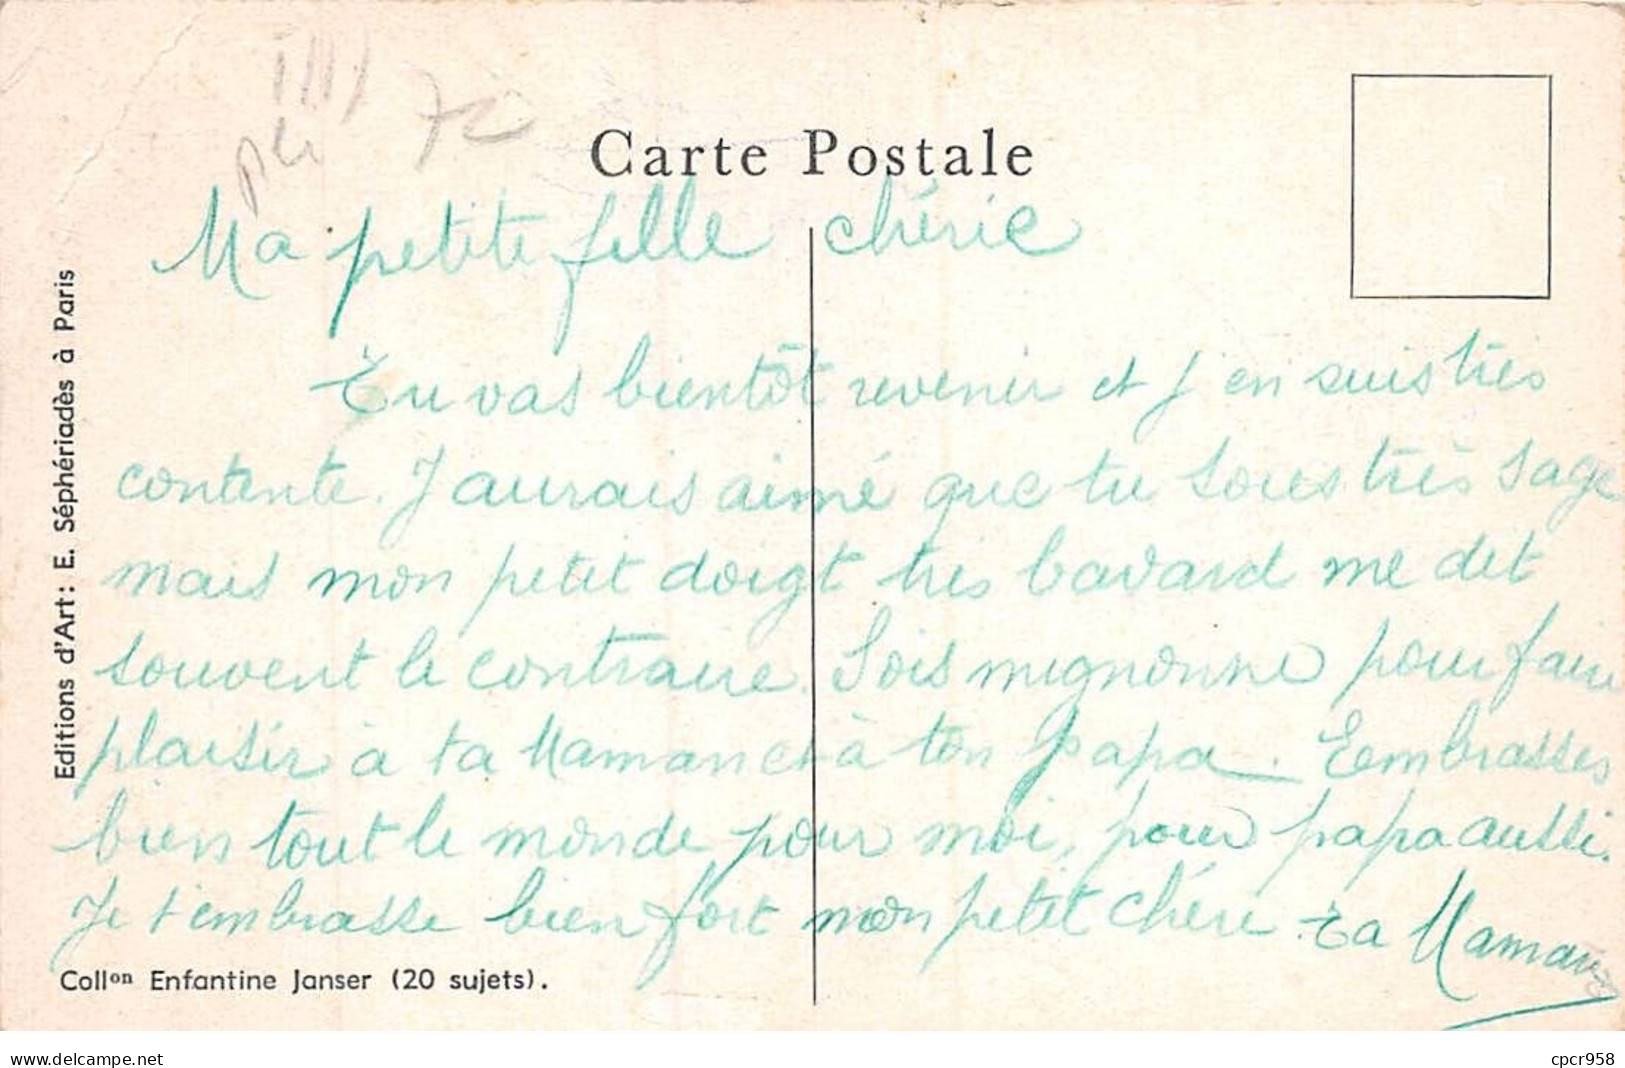 Carte Postale
Ma petite fille chérie
Tu vas bientôt revenir et j'en suis très
contente. J'aurais aimé que tu sois très sage
mais mon petit doigt très bavard me dit
souvent le contraire. Sois mignonne pour faire
plaisir à ta Maman et à ton Papa. Embrasses
bien tout le monde pour moi, pour papa aussi.
Je t'embrasse bien fort mon petit chéri. Ta Maman
Editions d'Art: E. Séphériadès à Paris
Collon Enfantine Janser (20 sujets).
www.delcampe.net
cpcr958